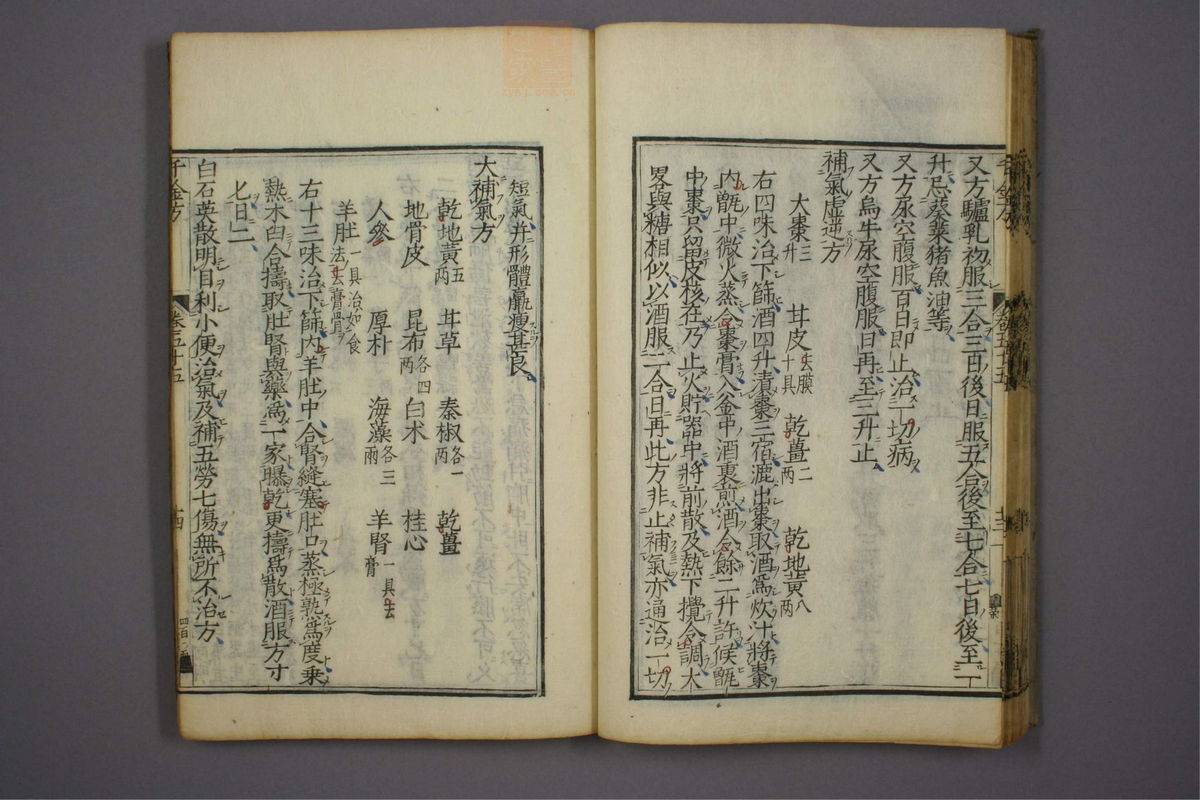 又方驢乳初服三合三百後日服五合後至七合七日後至一
升忌葵菜猪魚油等
又方尿空腹服百日即止治一切病
又方烏牛尿空腹服日再至三升止
補氣虛逆方
大棗三升 甘皮去膜十具 乾薑二兩 乾地黄八兩
右四味治下篩酒四升漬棗三宿漉出棗取酒爲炊汁將棗
内甑中微火蒸令棗膏入釜中酒裏煎酒令餘二升許候甑
中棗只留皮核在乃止火貯器中將前散及熱下攪令調大
畧與糖相似以酒服二合日再此方非止補氣亦通治一切
短氣并形體羸瘦甚良
大補氣方
乾地黄五兩 甘草 秦椒各一兩 乾薑
地骨皮 昆布各四兩 白术 桂心
人參 厚朴 海藻各三兩 羊腎一具去膏
羊肚一具治如食法去膏骨
右十三味治下篩内羊肚中合腎縫塞肚口蒸極熟爲度乗
熱木臼合擣取肚腎與藥爲一家曝乾更擣爲散酒服方寸
匕日二
白石英散明目利小便治氣及補五勞七傷無所不治方
千金方 卷五十五 十四